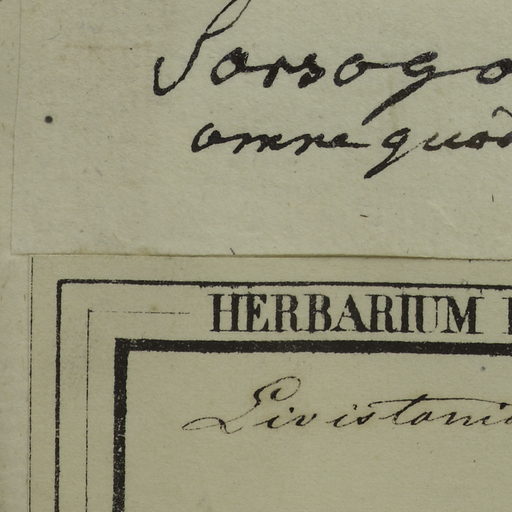 Sorsogo
omne quod
HERBARIUM
Livistonia